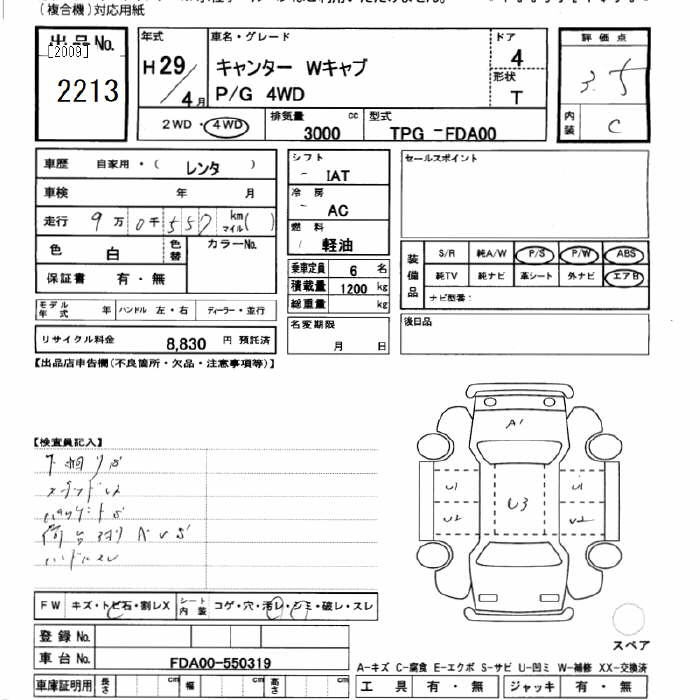 (複合機)対応用紙
出品No.
[2009]
2213
年式
H29/4月
車名・グレード
キャンター Wキャブ
P/G 4WD
ドア
4
形状
T
2WD・4WD
排気量
3000
cc
型式
TPG -FDA00
評価点
3.5
内装
C
車歴 自家用・( レンタ )
車検 年 月
走行 9万0千557 km マイル( )
色 白 色替 カラーNo.
保証書 有・無
モデル年式 年 ハンドル 左・右 ディーラー・並行
リサイクル料金 8,830 円 預託済
シフト
IAT
冷房
AC
燃料
軽油
乗車定員 6 名
積載量 1200 kg
総重量 kg
名変期限
月 日
セールスポイント
装備品
S/R 純A/W P/S P/W ABS
純TV 純ナビ 革シート 外ナビ エアB
ナビ型番:
後日品
【出品店申告欄(不良箇所・欠品・注意事項等)】
【検査員記入】
A1
U1
U2
U3
U1
U2
FW キズ・トビ石・割レX シート内装 コゲ・穴・汚レ・シミ・破レ・スレ
登録No.
車台No. FDA00-550319
車庫証明用 長さ cm 幅 cm 高さ cm
スペア
A-キズ C-腐食 E-エクボ S-サビ U-凹ミ W-補修 XX-交換済
工具 有・無 ジャッキ 有・無